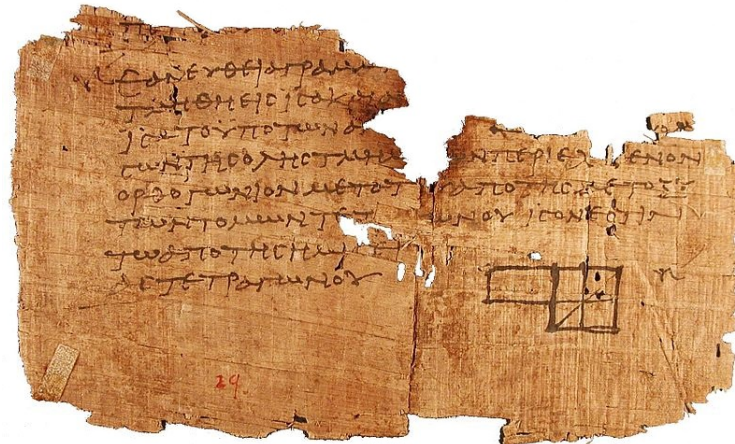 ΕΑΝ ΕΥΘΕΙΑ ΓΡΑΜΜ
ΤΜΗΘΗ ΕΙϹ ΙϹΑ ΚΑΙ Α
ΙϹΑ ΤΟ ΥΠΟ ΤΩΝ Α
ϹΩΝ ΤΗϹ ΟΛΗϹ ΤΜΗ ΩΝ ΠΕΡΙΕΧΟΜΕΝΟΝ
ΟΡΘΟΓΩΝΙΟΝ ΜΕΤΑ ΤΟΥ ΑΠΟ ΤΗϹ ΜΕΤΟΞΥ
ΤΩΝ ΤΟΜΩΝ ΤΕΤ ΩΝΟΥ ΙϹΟΝ ΕϹΤΙΝ
ΤΩ ΑΠΟ ΤΗϹ ΗΜΙϹΕΙ
ΑϹ ΤΕΤΡΑΓΩΝΟΥ
29